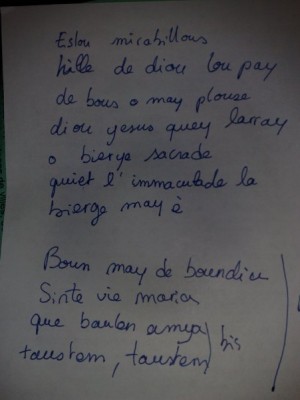 Eslou mirabillous
hille de diou lou pay
de bous o may plouse
diou yesus quey larray
o bierge sacrade
quiet l'immaculade la
bierge may è
Boun may de boundieu
Sinte vie maria
que boulon amya
taustem, taustem bis